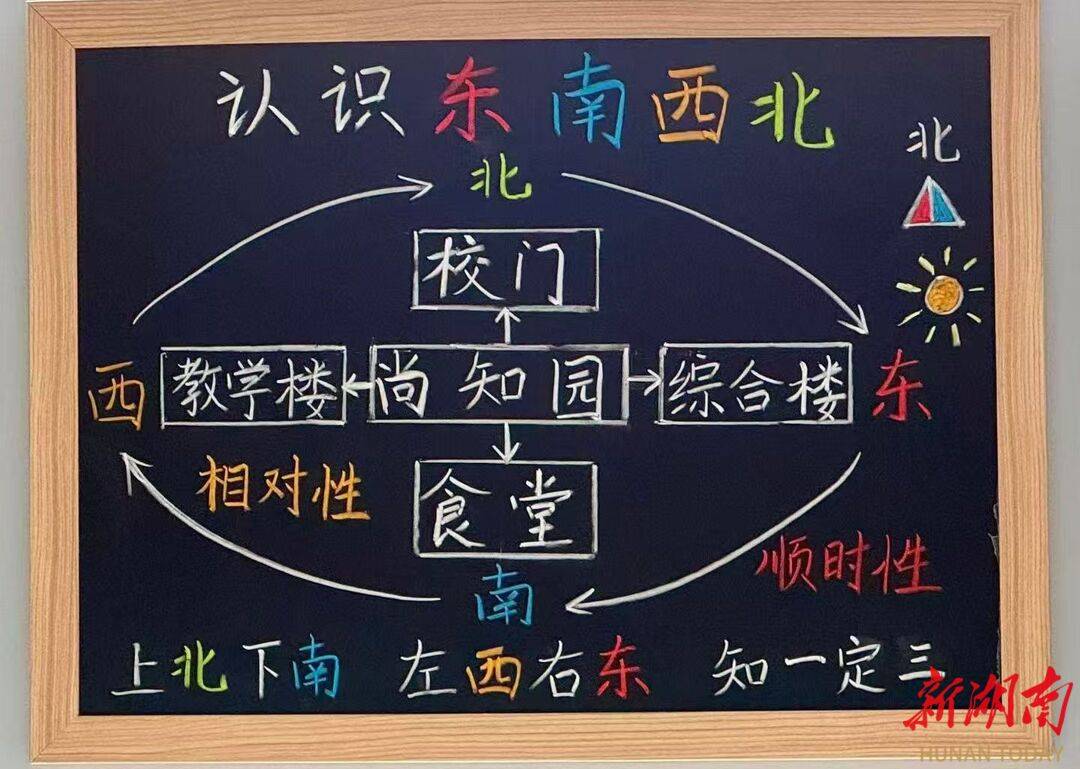 认识东南西北
北
北
校门
西 教学楼 尚知园 综合楼 东
相对性
食堂
顺时性
南
上北下南 左西右东 知一定三
新湖南
HUNAN TODAY